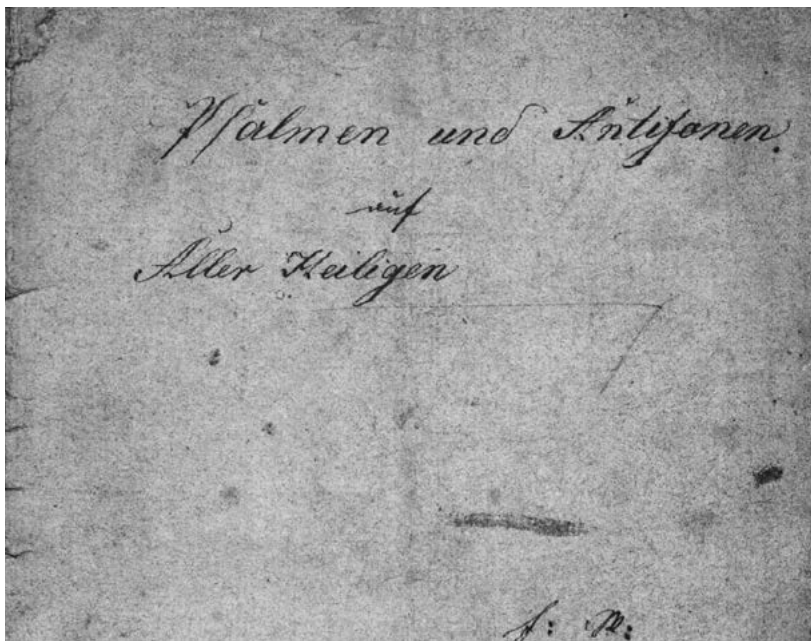 Psalmen und Antifonen.
auf
Aller Heiligen